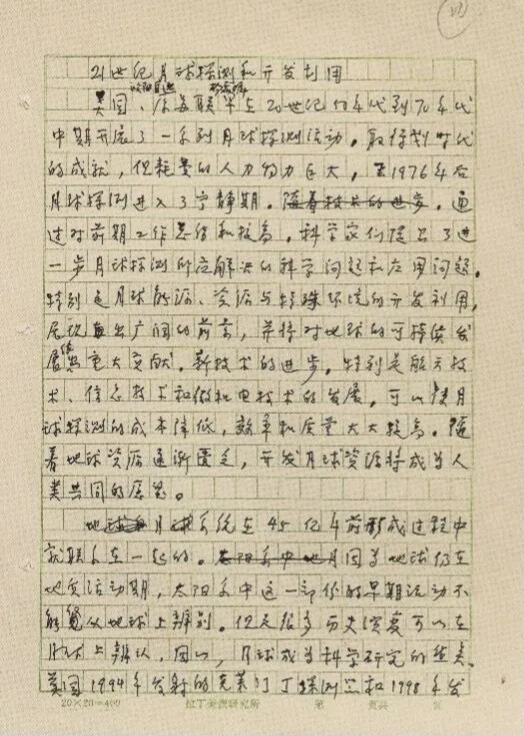 21世纪月球探测和开发利用
美国、原苏联早在20世纪50年代到70年代
中期开展了一系列月球探测活动,取得划时代
的成就,但耗费的人力物力巨大,至1976年后
月球探测进入了宁静期。随着技术的进步,通
过对前期工作总结和提高,科学家们提出了进
一步月球探测所应解决的科学问题和应用问题。
特别是月球能源、资源与特殊环境的开发利用,
展现出广阔的前景,并将对地球的可持续发
展重大贡献。新技术的进步,特别是航天技
术、信息技术和微机电技术的发展,可以使月
球探测的成本降低,效率和质量大大提高。随
着地球资源逐渐匮乏,开发月球资源将成为人
类共同的愿望。
地月系统在45亿年前形成过程中
就联系在一起的。因为地球仍在
地质活动期,太阳系中这一部份的早期活动不
能从地球上辨别。但是很多历史演变可以在
月球上辨认,因此,月球成为科学研究的
美国1994年发射的克莱门丁探测器和1998年发
20×20=400
研究所
第 页共 页